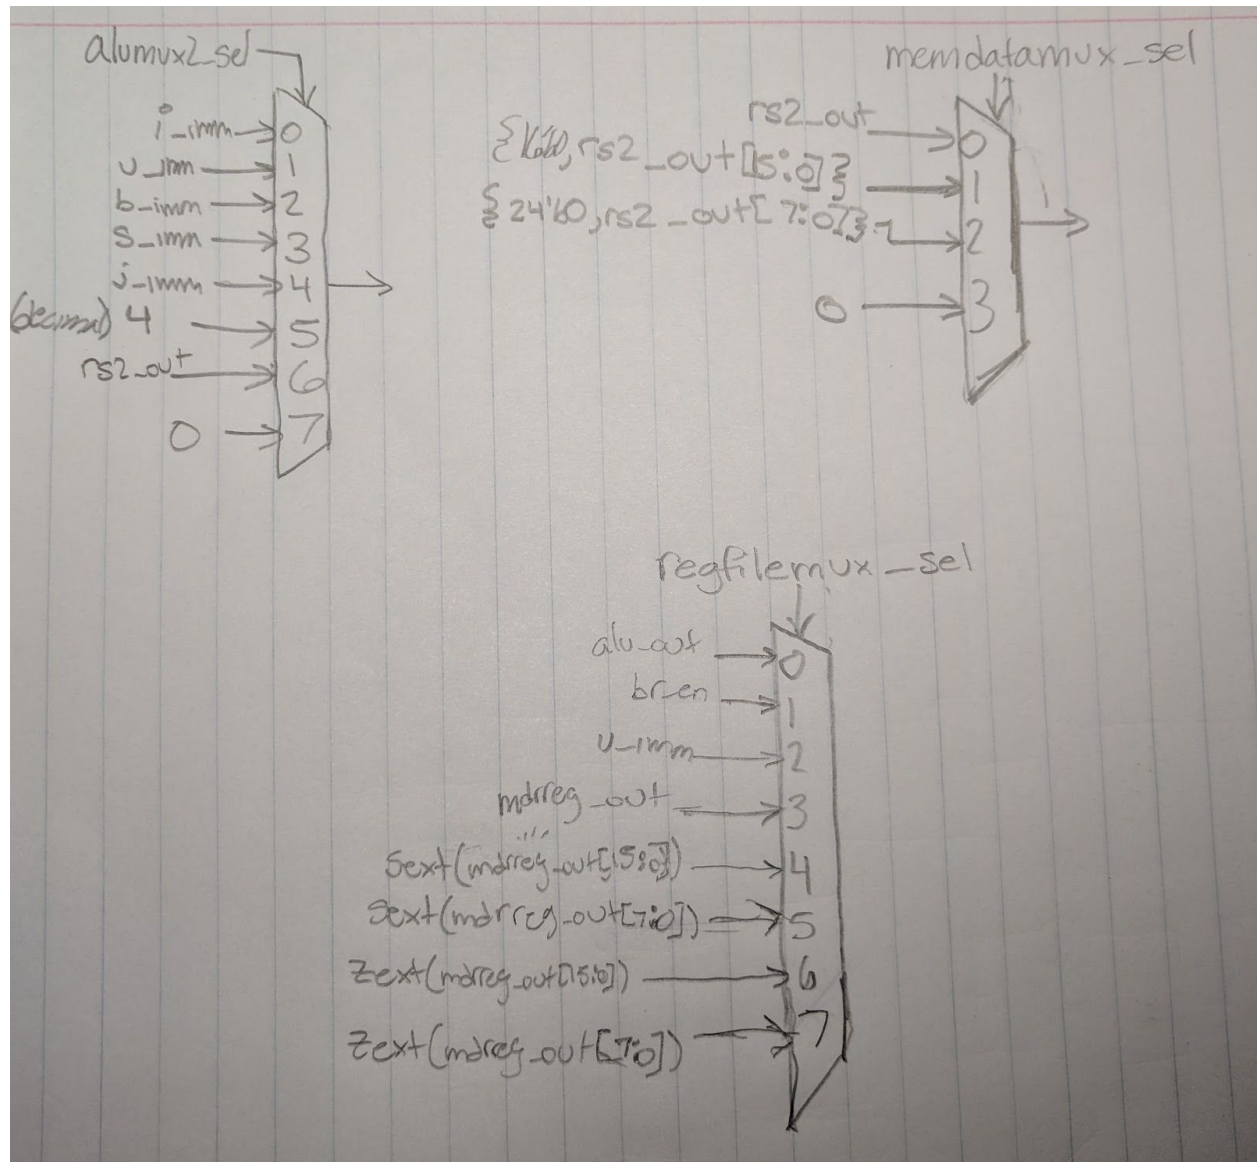 alumux2_sel
i_imm 0
u_imm 1
b_imm 2
s_imm 3
j_imm 4
(decimal) 4 5
rs2_out 6
0 7
memdatamux_sel
rs2_out 0
{16'b0,rs2_out[15:0]} 1
{24'b0,rs2_out[7:0]} 2
0 3
regfilemux_sel
alu_out 0
br_en 1
u_imm 2
mdrreg_out 3
Sext(mdrreg_out[15:0]) 4
Sext(mdrreg_out[7:0]) 5
Zext(mdrreg_out[15:0]) 6
Zext(mdrreg_out[7:0]) 7